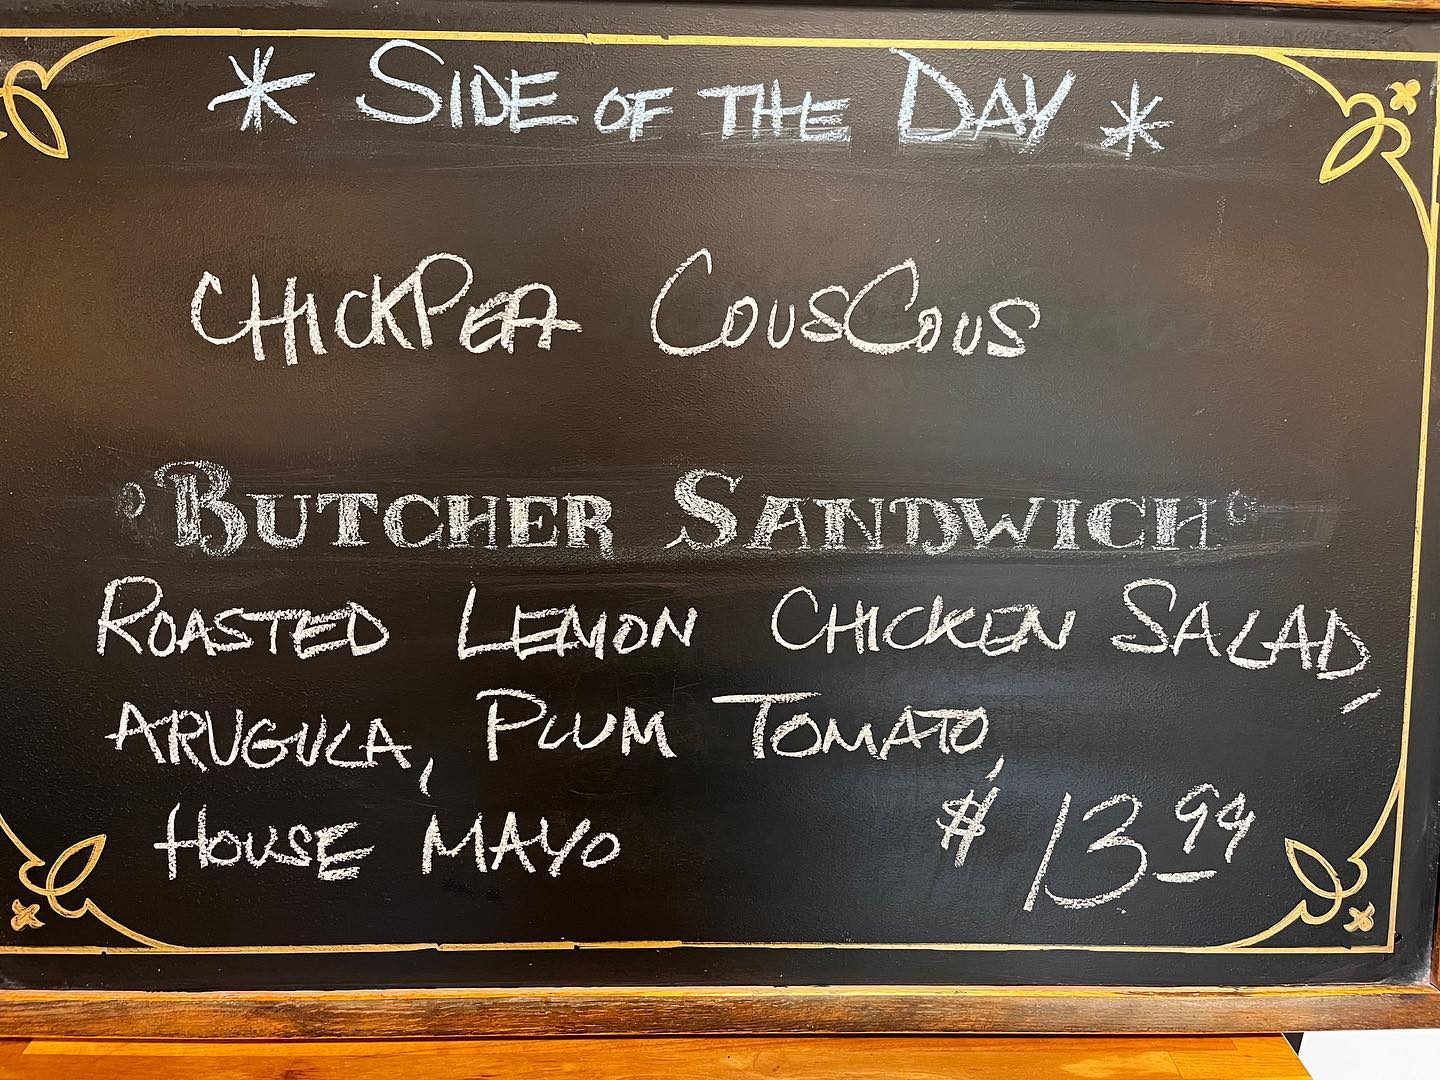 * SIDE OF THE DAY *
CHICKPEA COUSCOUS
BUTCHER SANDWICH
ROASTED LEMON CHICKEN SALAD,
ARUGULA, PLUM TOMATO,
HOUSE MAYO $13.99